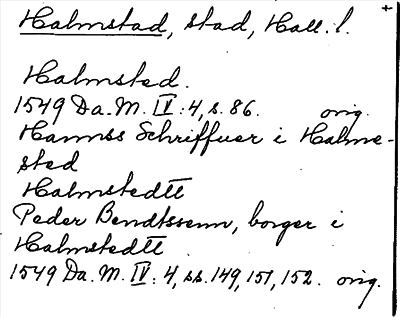 Halmstad, stad, Hall. l.
Halmsted.
1549 Da. M. IV: 4, s. 86. orig.
Hannss Schriffuer i Halme-
sted
Halmstedtt
Peder Bendtssenn, borger i
Halmstedtt
1549 Da. M. IV: 4, ss. 149, 151, 152. orig.